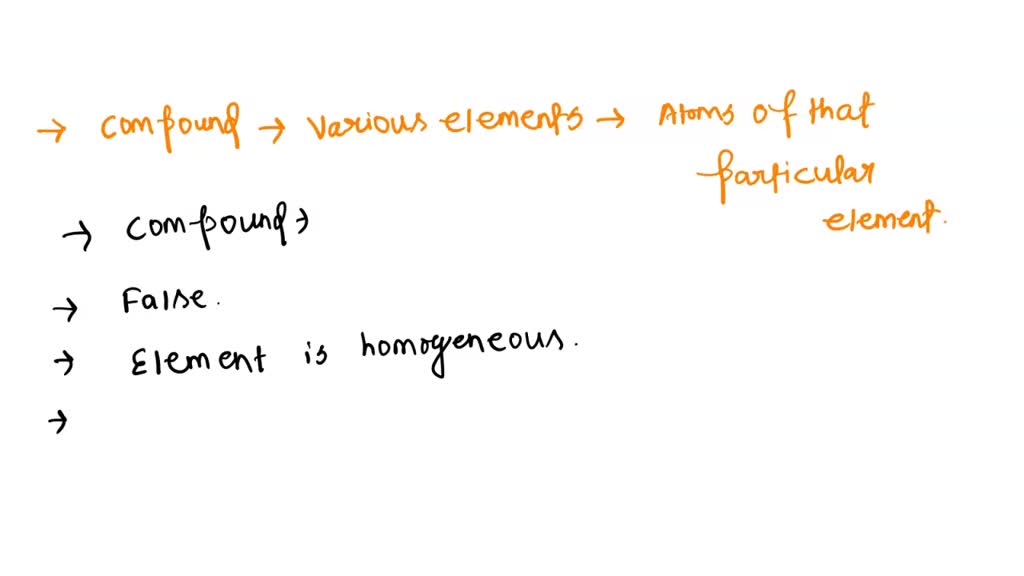 → Compound → Various elements → Atoms of that
particular
element.
→ Compound →
→ False.
→ Element is homogeneous.
→